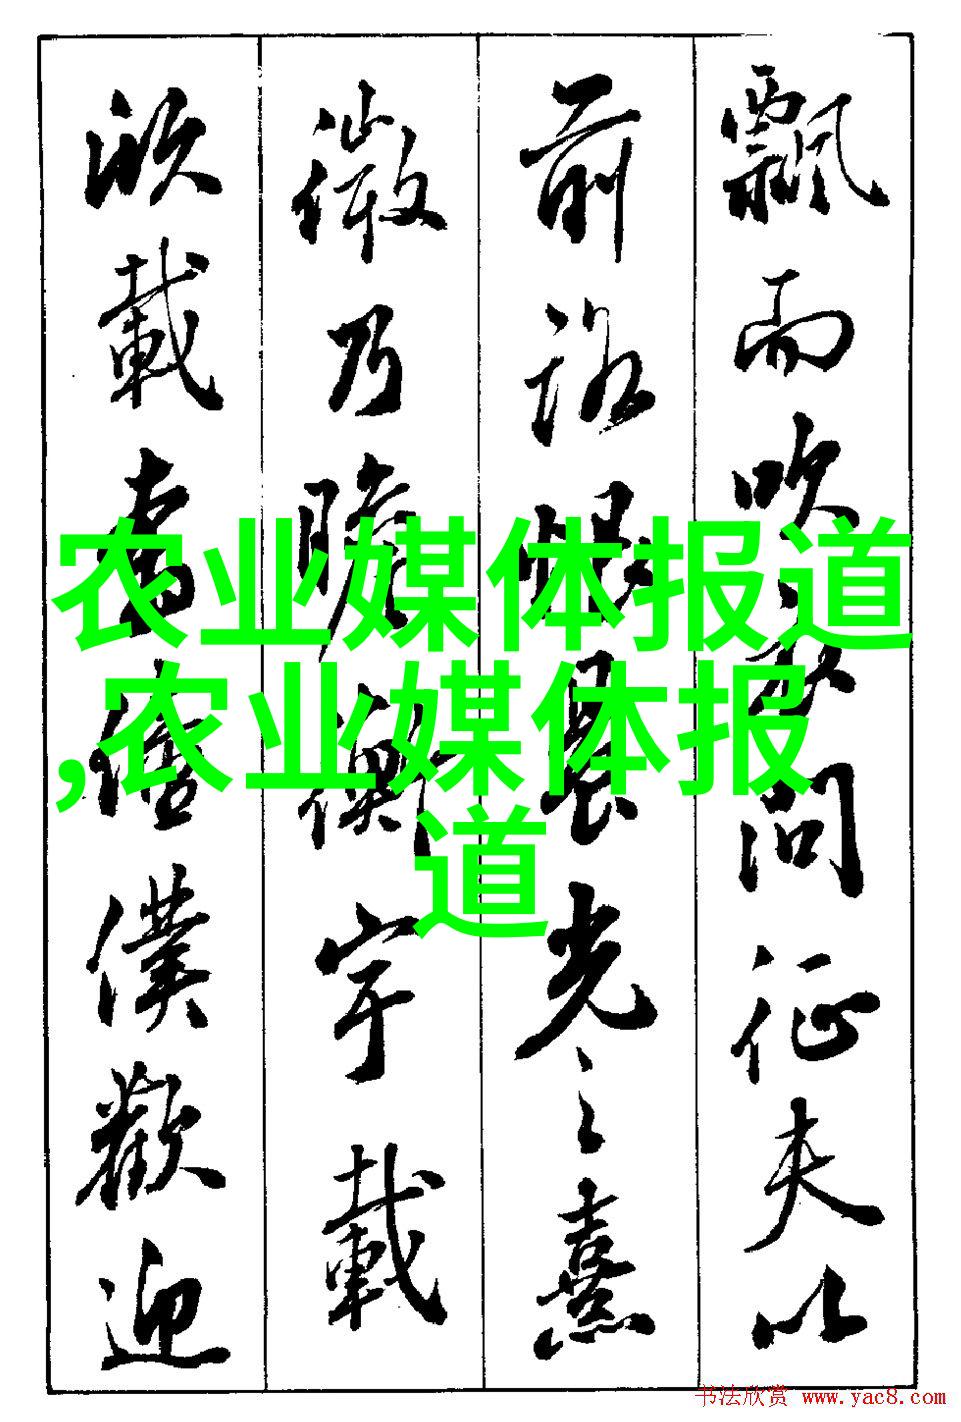 飄而吹衣問征夫以
前路恨晨光之熹
微乃瞻衡宇載
欣載奔僮僕歡迎
农业媒体报道
,农业媒体报
道
书法欣赏 www.yac8.com